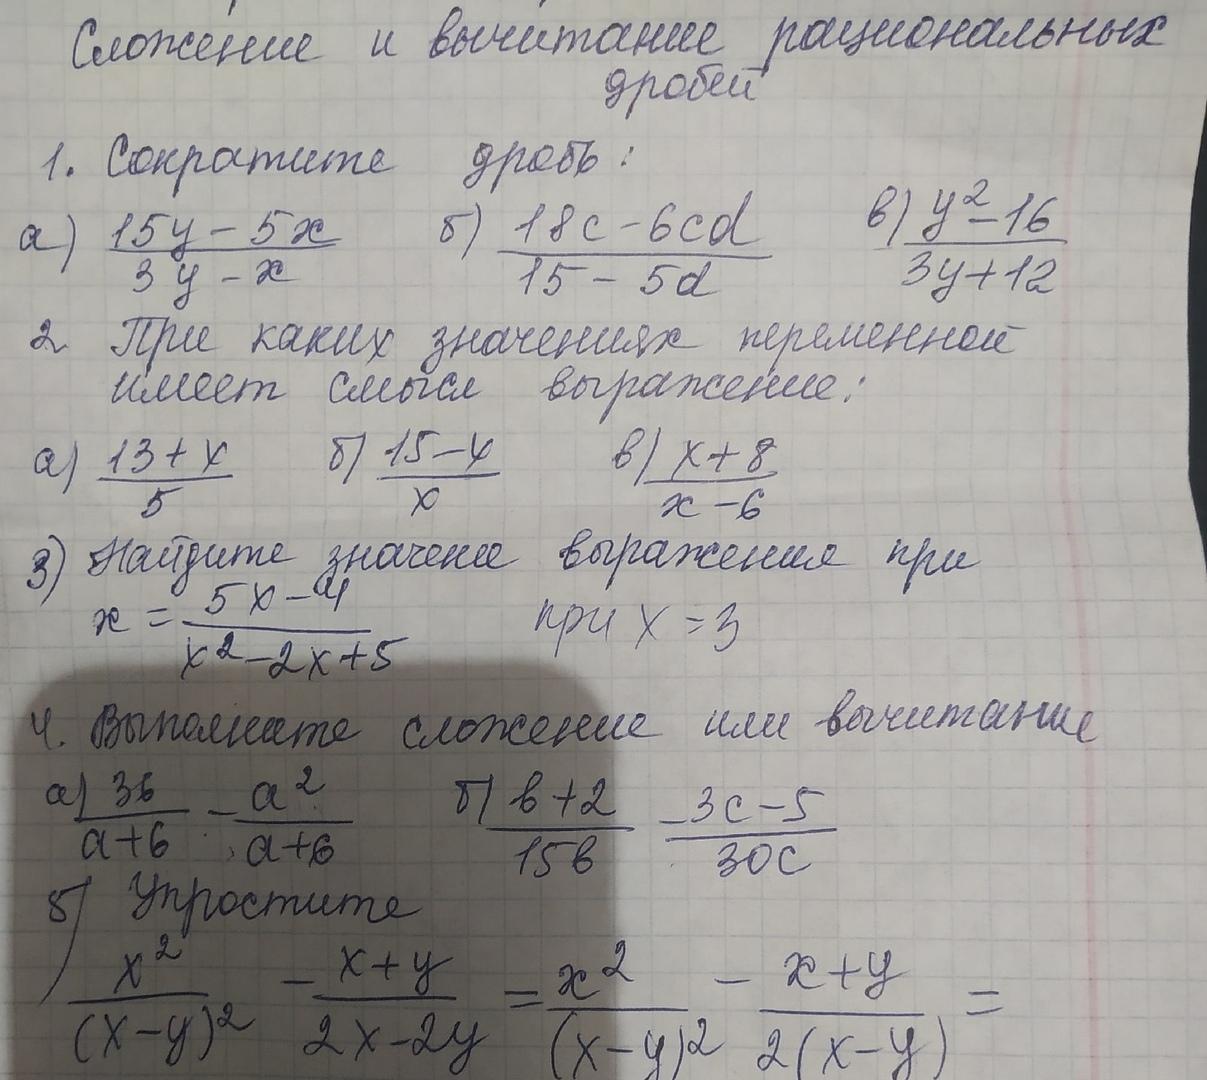 Сложение и вычитание рациональных
дробей
1. Сократите дробь:
а) (15y - 5x)/(3y - x) б) (18c - 6cd)/(15 - 5d) в) (y² - 16)/(3y + 12)
2 При каких значениях переменной
имеет смысл выражение:
а) (13 + x)/5 б) (15 - x)/x в) (x + 8)/(x - 6)
3) Найдите значене выражения при
x = (5x - 4)/(x² - 2x + 5) при x = 3
4. Выполнате сложение или вычитание
а) 36/(a + 6) - a²/(a + 6) б) (b + 2)/(15b) - (3c - 5)/(30c)
5) Упростите
x²/(x - y)² - (x + y)/(2x - 2y) = x²/(x - y)² - (x + y)/(2(x - y)) =